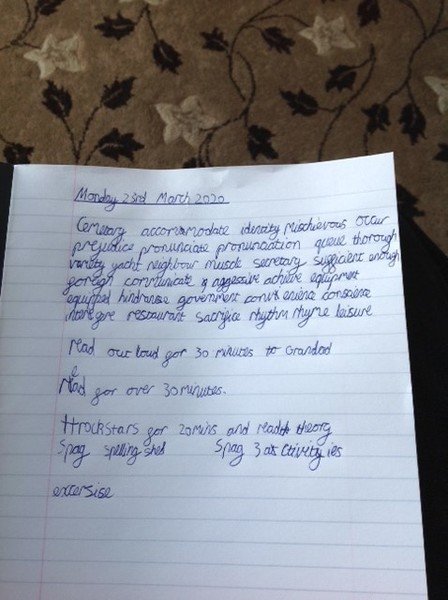 Monday 23rd March 2020
Cemetary accommodate identity Mischievous occur
prejudice pronunciate pronunciation queue thorough
variety yacht neighbour muscle secretary sufficient enough
foreign communicate aggressive achieve equipment
equipped hindranse government convenience conscience
interefere restaurant sacrifice rhythm rhyme leisure
Read out loud for 30 minutes to Grandad
Read for over 30 minutes.
ttrockstars for 20mins and read theory
Spag spelling shed Spag 3 activity ies
excersise